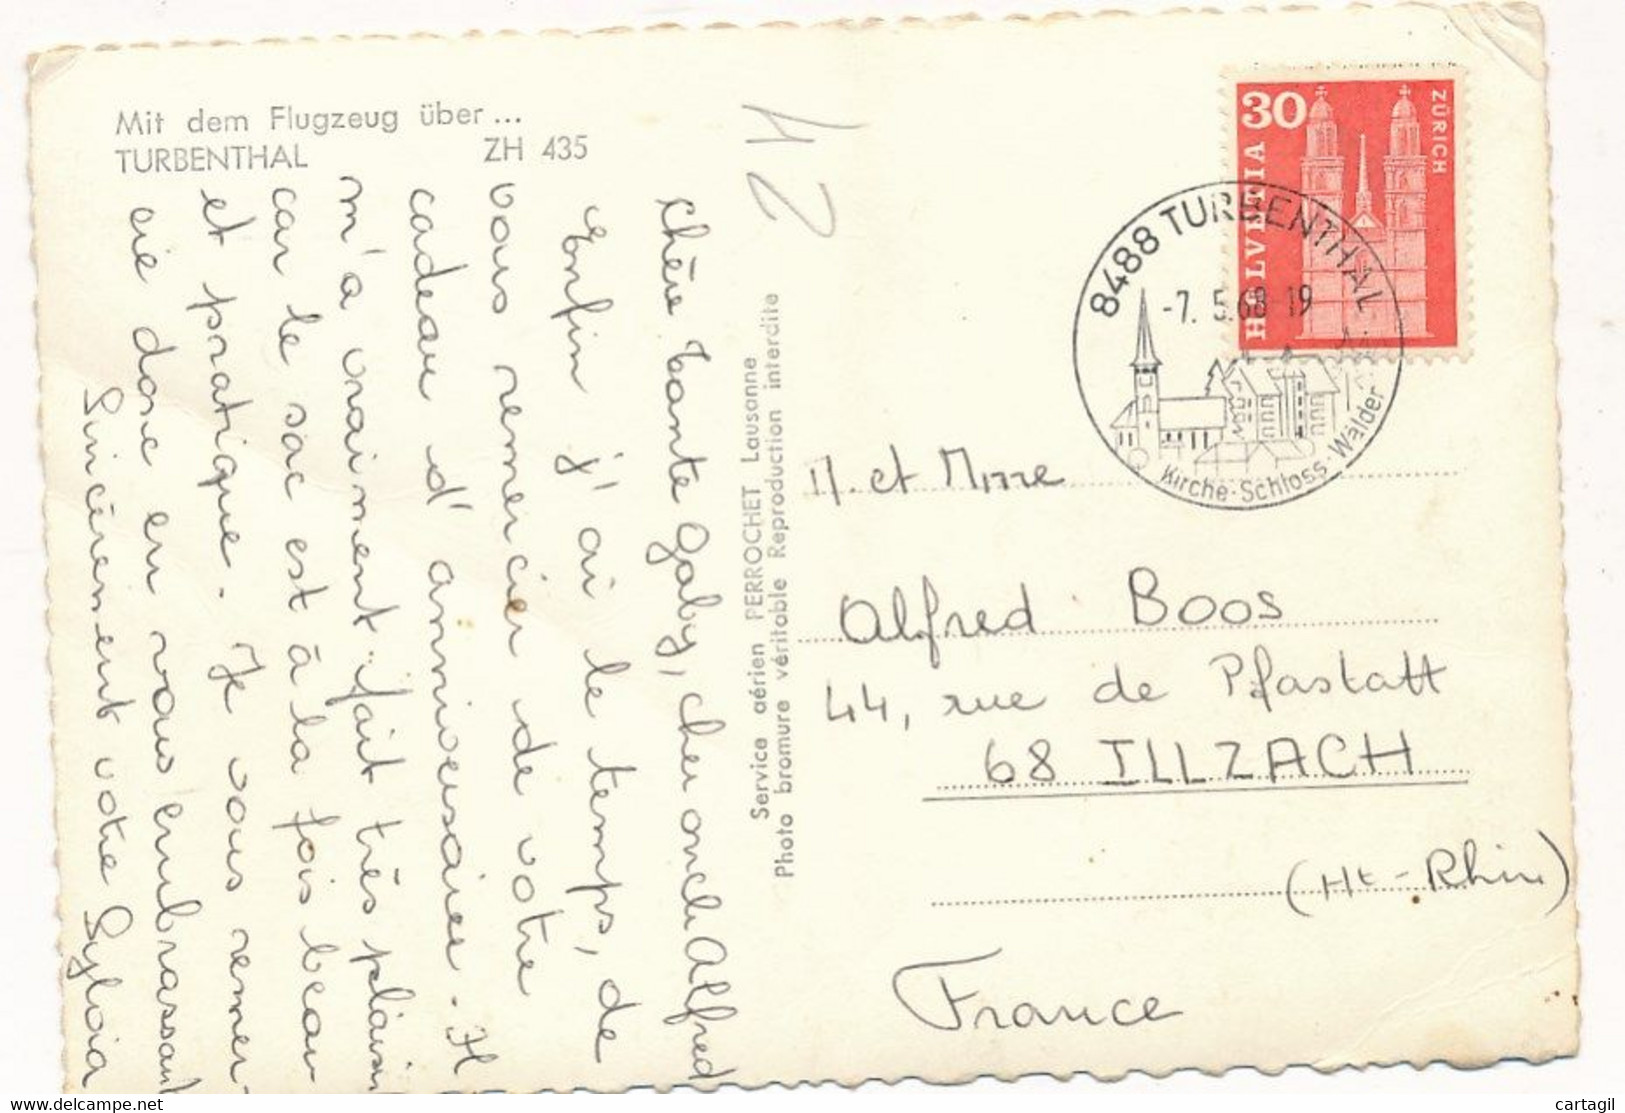 Mit dem Flugzeug über ...
TURBENTHAL ZH 435
12
chère tante Gaby, cher oncle Alfred
Enfin j'ai le temps, de
vous remercier de votre
cadeau d'anniversaire. Il
m'a vraiment fait très plaisir
car le sac est à la fois beau
et pratique. Je vous remer-
cie donc en vous embrassant
Sincèrement votre Sylvia
Service aérien PERROCHET Lausanne
Photo bromure véritable Reproduction interdite
30
HELVETIA
ZÜRICH
8488 TURBENTHAL
-7. 5.68 19
Kirche·Schloss·Wälder
M. et Mme
Alfred Boos
44, rue de Pfastatt
68 ILLZACH
(Ht-Rhin)
France
cartagil
delcampe.net